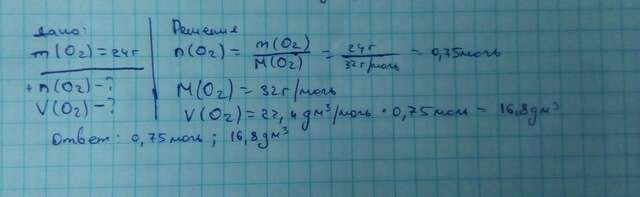 Дано:
m(O₂) = 24г
n(O₂) - ?
V(O₂) - ?
Решение
n(O₂) = m(O₂) / M(O₂) = 24г / 32г/моль = 0,75моль
M(O₂) = 32г/моль
V(O₂) = 22,4дм³/моль · 0,75моль = 16,8дм³
Ответ: 0,75моль ; 16,8дм³